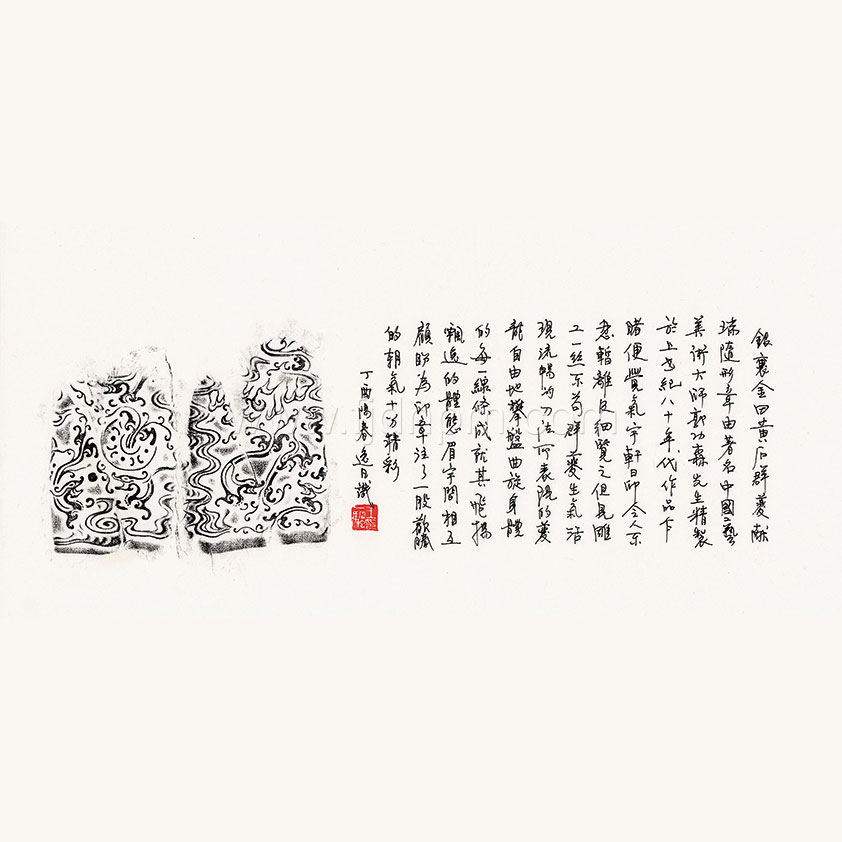 銀裹金田黄石群夔献
瑞隨形章由著名中國工藝
美術大師郭功森先生精製
於上世紀八十年代作品乍
睹便覺氣宇軒昂令人不
忍暫離反細覽之但見雕
工一絲不苟群夔生氣活
現流暢的刀法所表現的夔
龍自由地攀盤曲旋身體
的每一線條成就其飛揚
飄逸的體態眉宇間相互
顧盼為印章注了一股歡騰
的朝氣十分精彩
丁酉陽春逸日識